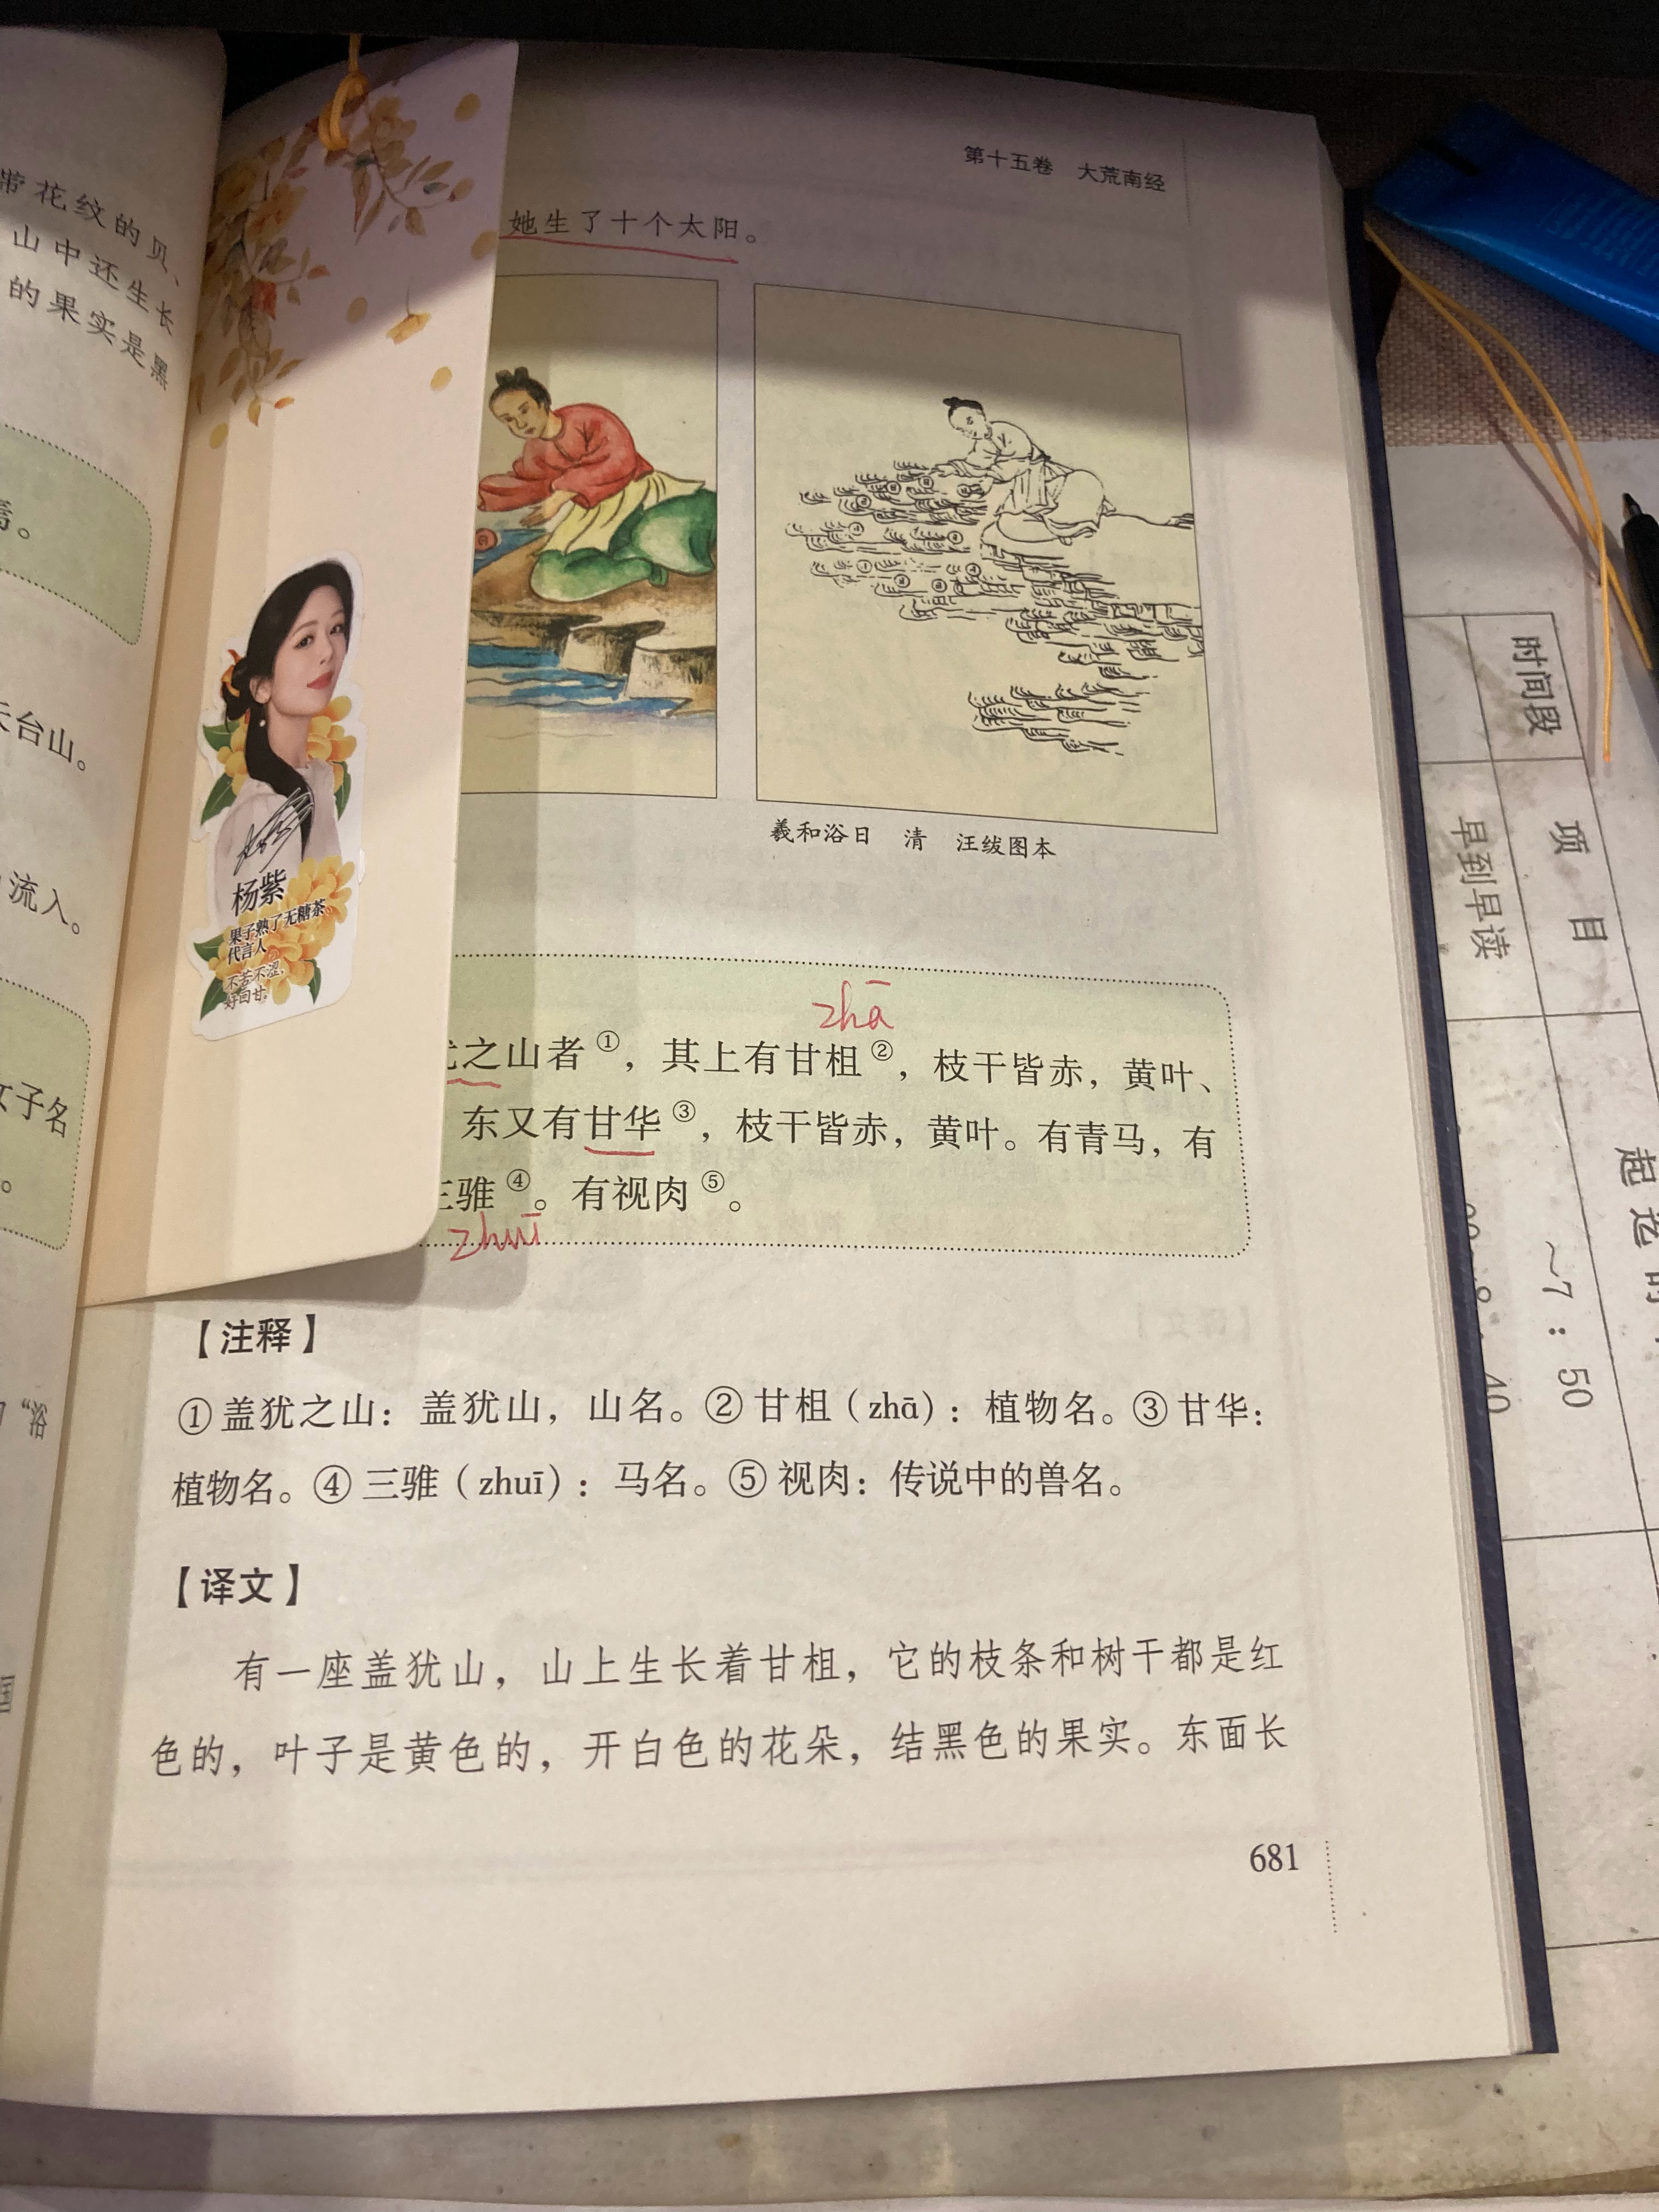 带花纹的贝、
山中还生长
的果实是黑
焉。
天台山。
流入。
女子名
。
“浴
国
第十五卷 大荒南经
她生了十个太阳。
羲和浴日 清 汪绂图本
杨紫
果子熟了无糖茶
代言人
不苦不涩,
好回甘。
zhā
之山者①，其上有甘柤②，枝干皆赤，黄叶、
东又有甘华③，枝干皆赤，黄叶。有青马，有
三骓④。有视肉⑤。
zhuī
【注释】
①盖犹之山：盖犹山，山名。②甘柤（zhā）：植物名。③甘华：
植物名。④三骓（zhuī）：马名。⑤视肉：传说中的兽名。
【译文】
有一座盖犹山，山上生长着甘柤，它的枝条和树干都是红
色的，叶子是黄色的，开白色的花朵，结黑色的果实。东面长
681
时间段
项目
早到早读
～7：50
40
起